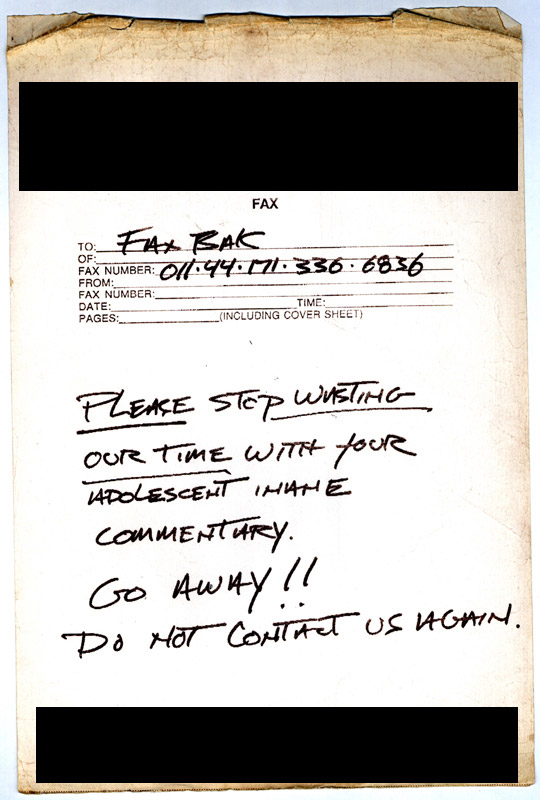 FAX
TO: FAX BAK
OF:
FAX NUMBER: 011·44·171·336·6836
FROM:
FAX NUMBER:
DATE: TIME:
PAGES: (INCLUDING COVER SHEET)
PLEASE STOP WASTING
OUR TIME WITH YOUR
ADOLESCENT INANE
COMMENTARY.
GO AWAY!!
DO NOT CONTACT US AGAIN.